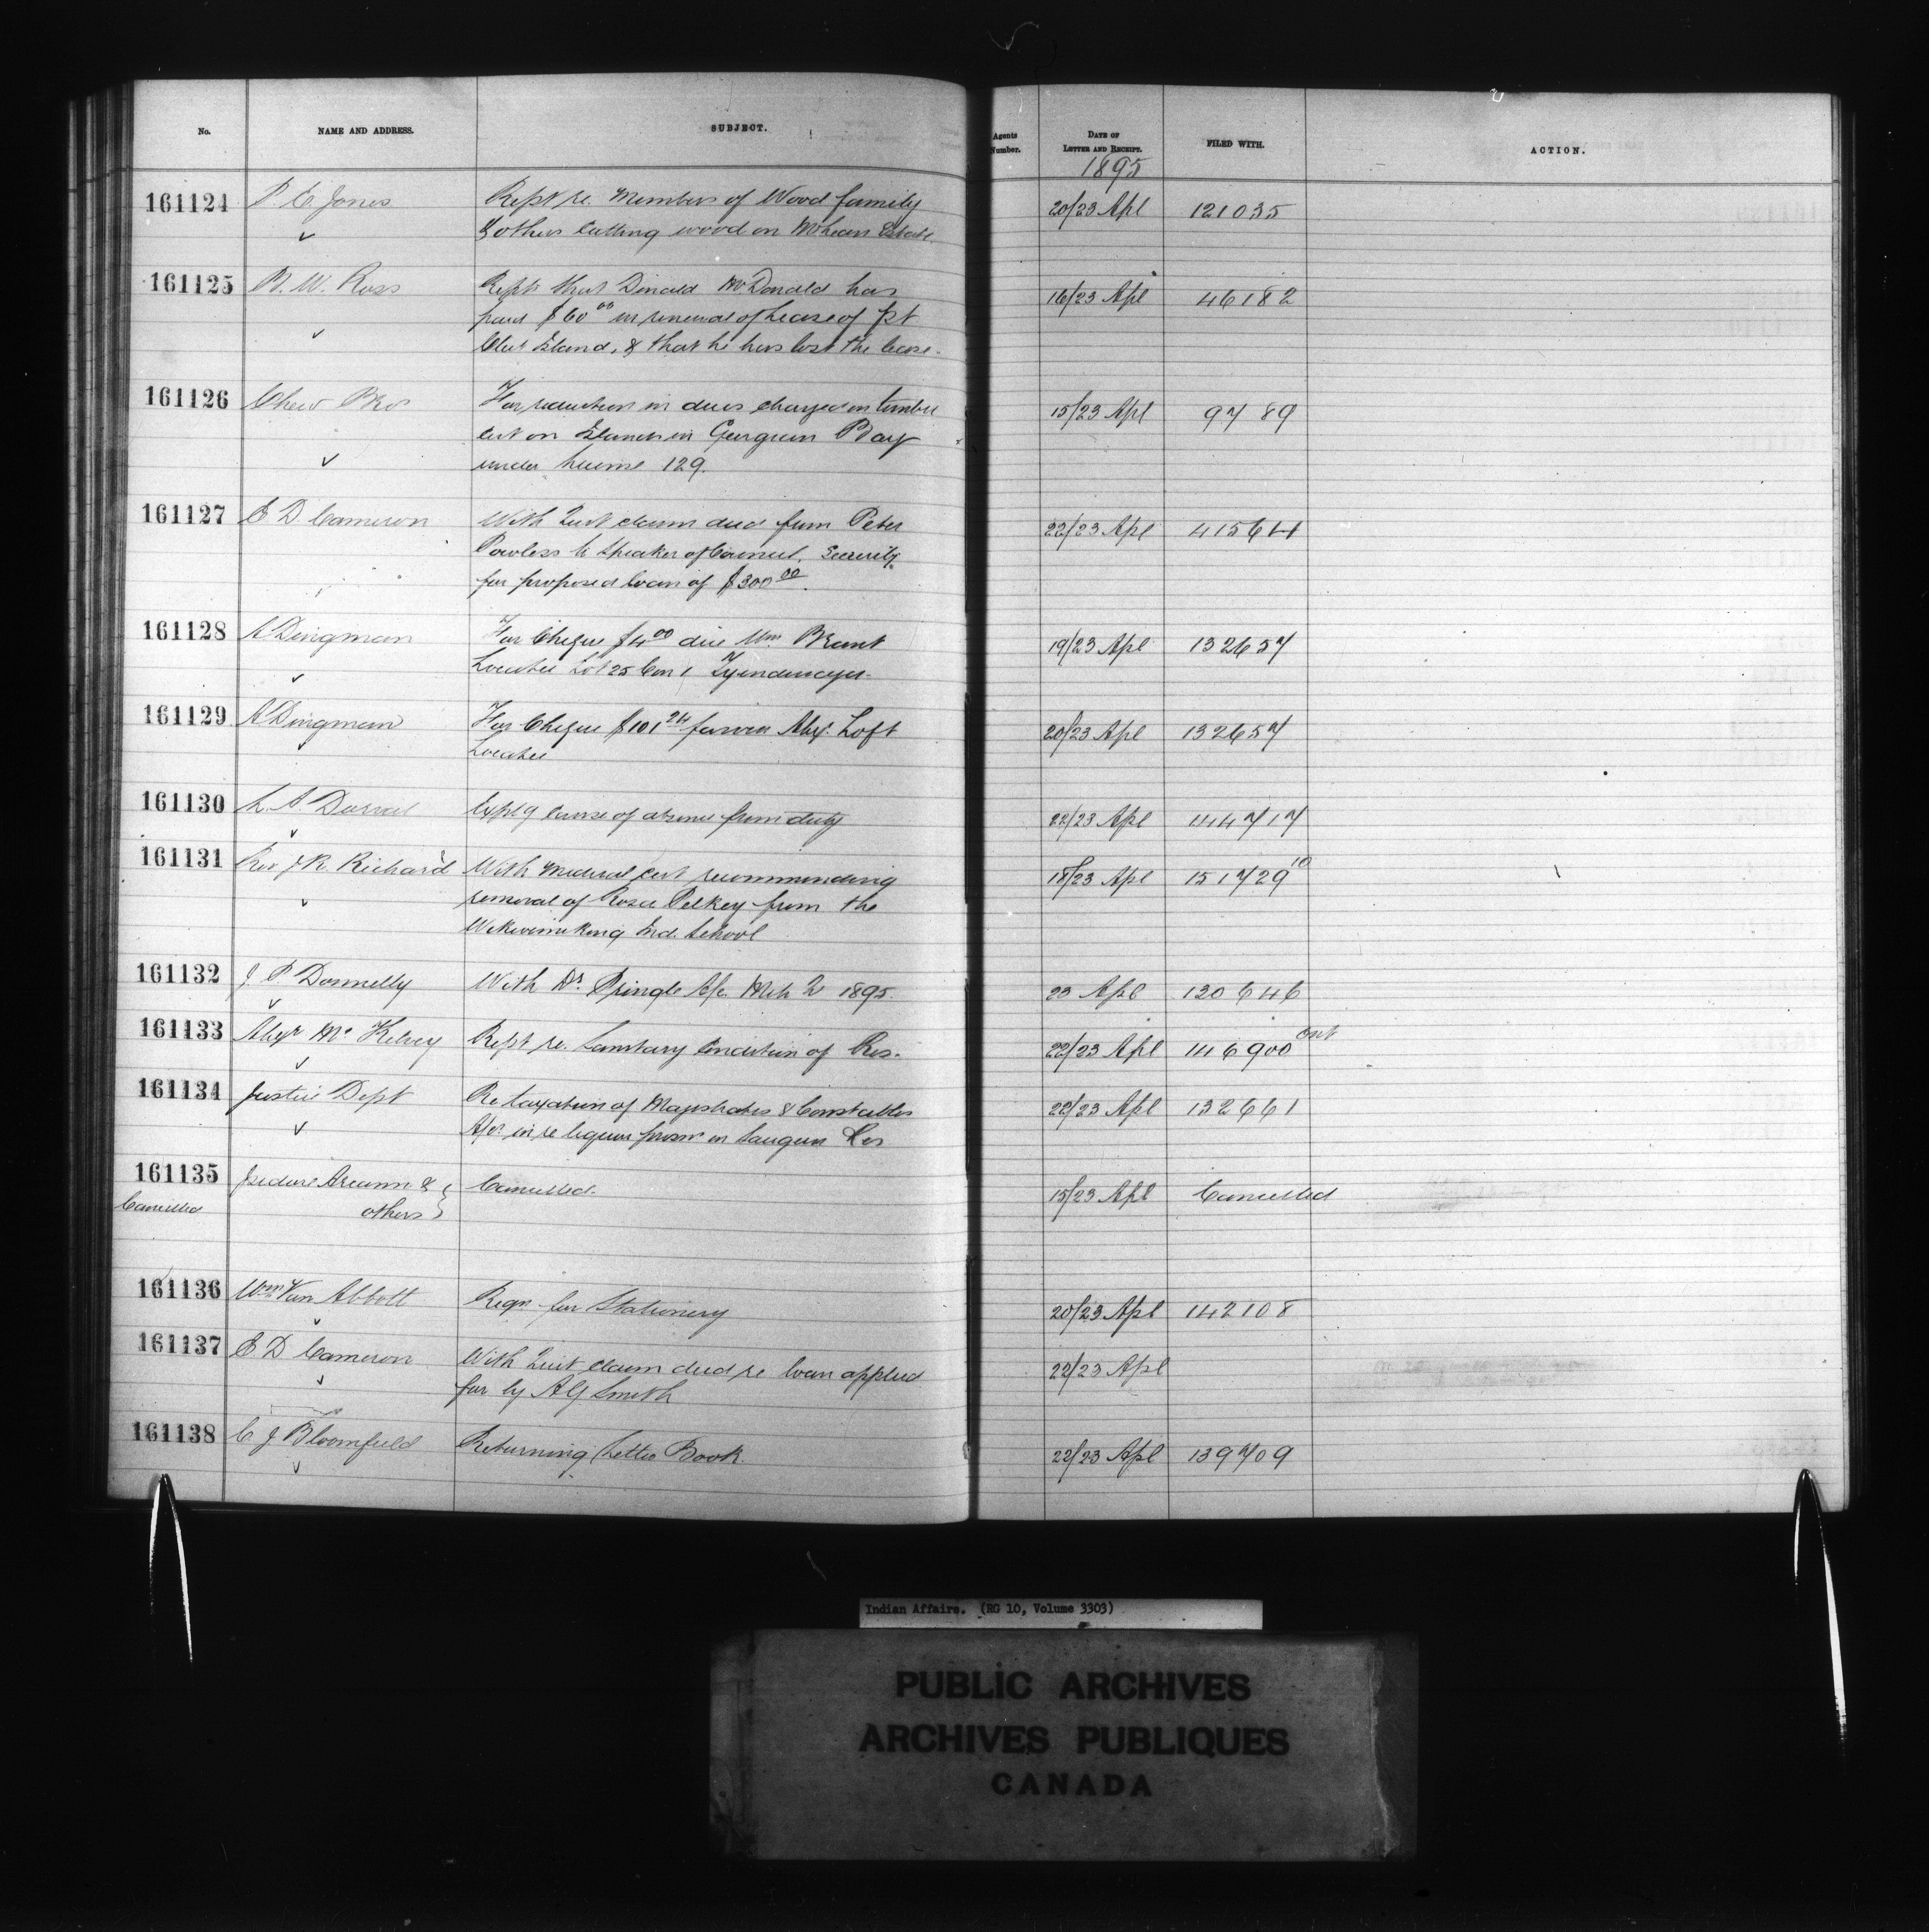 No. NAME AND ADDRESS. SUBJECT. Agents Number. DATE OF LETTER AND RECEIPT. FILED WITH. ACTION.
1895
161124 P. E. Jones Rept re. Members of Wood family 20/23 Apl 121035
& others cutting wood on McLean Estate
161125 B. W. Ross Repts that Donald McDonald has 16/23 Apl 46182
paid $60 00 in renewal of Lease of pt
Island, & that he has lost the lease.
161126 Chew Bros For reduction in dues charged on timber 15/23 Apl 9789
cut on Islands in Georgian Bay
under license 129.
161127 E D Cameron With Quit claim deed from Peter 22/23 Apl 41564
Powless to Speaker of Council. Security
for proposed loan of $300 00.
161128 A Dingman For Cheque $4 00 due Wm. Brant 19/23 Apl 132657
Locatee Lot 25 Con 1 Tyendinaga.
161129 A Dingman For Cheque $101 24 Alex. Loft 20/23 Apl 132657
Locatee
161130 L. A. Dorval Explg cause of absence from duty 22/23 Apl 144717
161131 Rev J. R. Richard With Medical cert recommending 18/23 Apl 151729 10
removal of Rosie Pelkey from the
Wikwemikong Ind. School
161132 J. P. Donnelly With Dr. Pringle A/c Mch Qr 1895. 23 Apl 130646
161133 Alexr McKelvey Rept re. Sanitary Condition of Res. 22/23 Apl 146900 Ont
161134 Justice Dept Re taxation of Magistrates & Constables 22/23 Apl 132661
A/cs in re liquor prosns on Saugeen Res
161135 Isidore & Cancelled. 15/23 Apl Cancelled
Cancelled others
161136 Wm Van Abbott Reqn for Stationery 20/23 Apl 142108
161137 E. D Cameron With Quit claim deed re loan applied 22/23 Apl
for by A G Smith
161138 C. J Bloomfield Returning Letter Book. 22/23 Apl 139709
Indian Affairs. (RG 10, Volume 3303)
PUBLIC ARCHIVES
ARCHIVES PUBLIQUES
CANADA